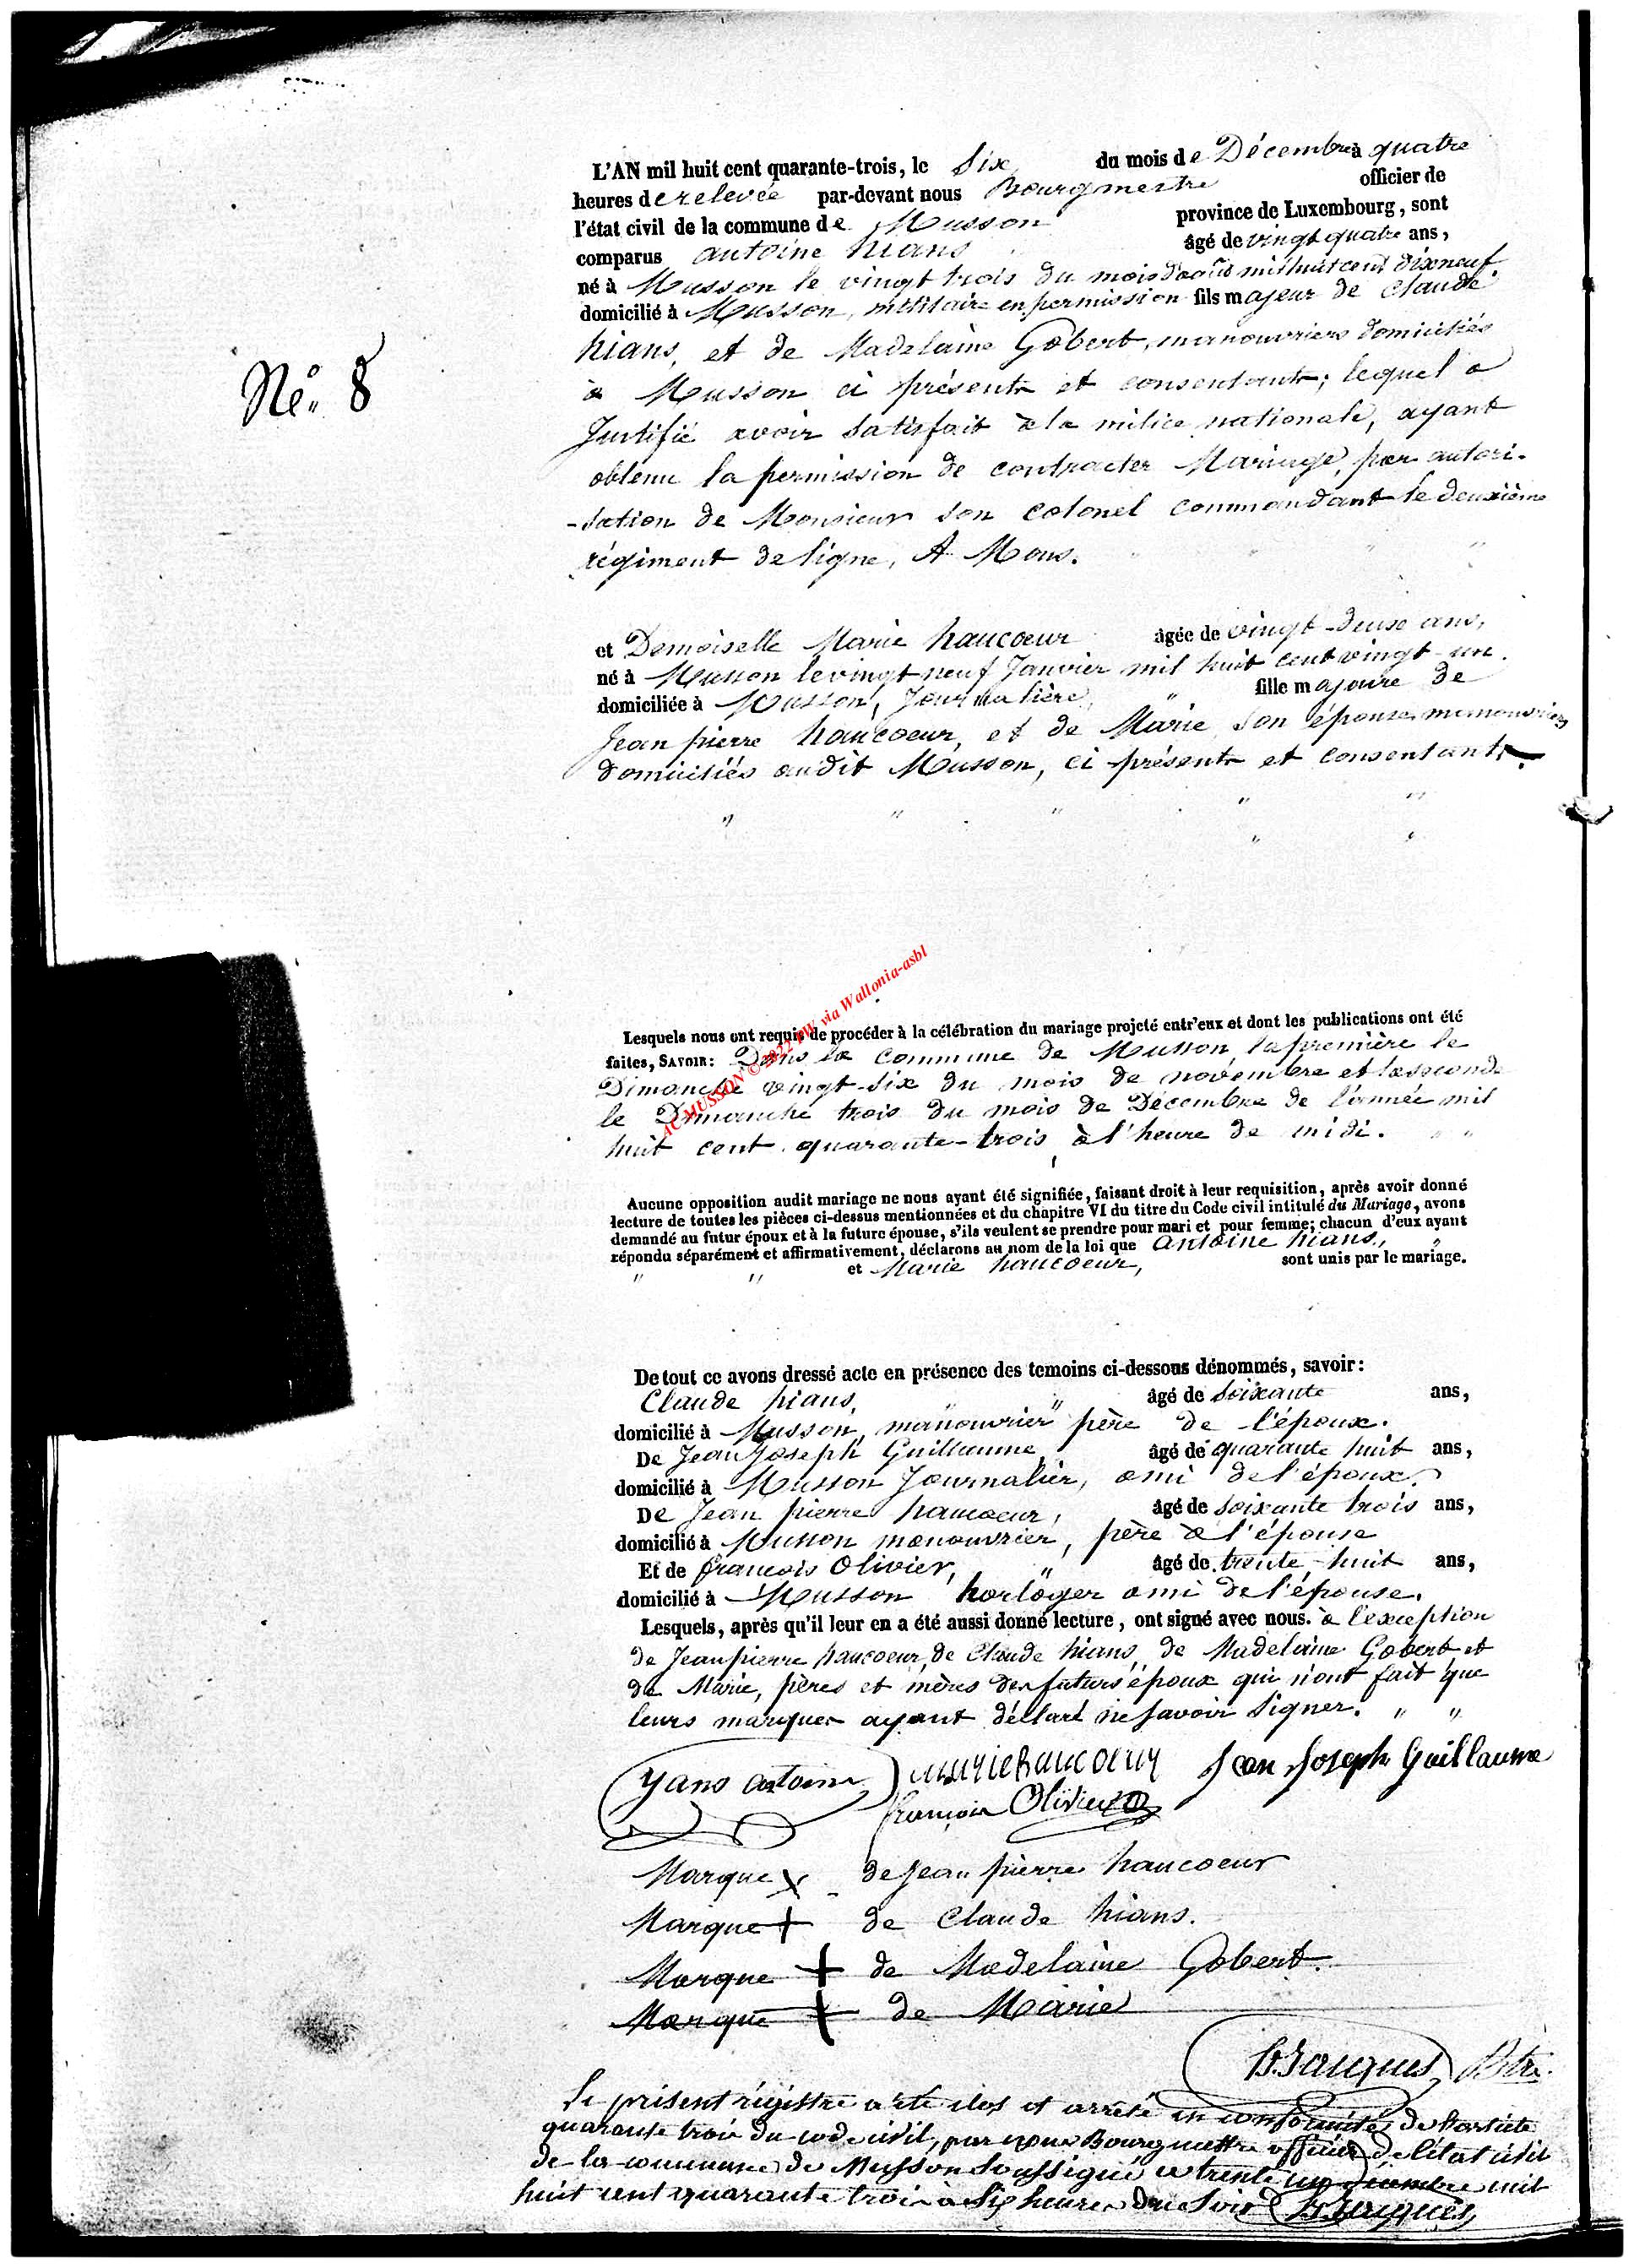 L'AN mil huit cent quarante-trois, le Six du mois de Décembre à quatre
heures de relevée par-devant nous Bourgmestre officier de
l'état civil de la commune de Musson province de Luxembourg, sont
comparus antoine hians âgé de vingt quatre ans,
né à Musson le vingt trois du mois d'août mil huit cent dix neuf.
domicilié à Musson, militaire en permission fils majeur de Claude
hians, et de Madelaine Gobert, manouvriers domiciliés
Ne. 8
à Musson ci présents et consentants; lequel a
Justifié avoir satisfait à la milice nationale, ayant
obtenu la permission de contracter Mariage, par autori-
-sation de Monsieur son colonel commandant le deuxième
régiment de ligne, A Mons.
et Demoiselle Marie haucoeur âgée de vingt-deuse ans,
né à Musson le vingt neuf Janvier mil huit cent vingt-un.
domiciliée à Musson, Journalière, " fille majeure de
Jean pierre haucoeur, et de Marie son épouse manouvriers
domiciliés audit Musson, ci présents et consentants.
" " " " "
" "
Lesquels nous ont requis de procéder à la célébration du mariage projeté entr'eux et dont les publications ont été
faites, SAVOIR: Dans la commune de Musson, la première le
Dimanche vingt-six du mois de novembre et la seconde
le Dimanche trois du mois de Décembre de l'année mil
huit cent quarante-trois, à l'heure de midi. " "
AC MUSSON © 2022 PW via Wallonia-asbl
Aucune opposition audit mariage ne nous ayant été signifiée, faisant droit à leur requisition, après avoir donné
lecture de toutes les pièces ci-dessus mentionnées et du chapitre VI du titre du Code civil intitulé du Mariage, avons
demandé au futur époux et à la future épouse, s'ils veulent se prendre pour mari et pour femme; chacun d'eux ayant
répondu séparément et affirmativement, déclarons au nom de la loi que Antoine hians, "
" " et Marie haucoeur, sont unis par le mariage.
De tout ce avons dressé acte en présence des temoins ci-dessous dénommés, savoir:
Claude hians, " âgé de soixante ans,
domicilié à Musson, manouvrier " père de l'époux.
De Jean Joseph Guillaume, âgé de quarante huit ans,
domicilié à Musson Journalier, ami de l'époux.
De Jean pierre haucoeur, âgé de soixante trois ans,
domicilié à Musson manouvrier, père à l'épouse
Et de françois Olivier, " âgé de trente-huit ans,
domicilié à Musson horloger ami de l'épouse.
Lesquels, après qu'il leur en a été aussi donné lecture, ont signé avec nous. à l'exception
de Jean pierre haucoeur, de Claude hians, de Madelaine Gobert et
de Marie, pères et mères des futurs époux qui n'ont fait que
leurs marques ayant déclaré ne savoir signer. " "
yans antoine mariehaucoeur Jean Joseph Guillaume
françois Olivier
Marque x de Jean pierre haucoeur
Marque + de Claude hians.
Marque + de Madelaine Gobert.
Marque + de Marie
Jauques, Btre.
Le présent régistre a été clos et arrêté en conformité de l'article
quarante trois du code civil, par nous Bourgmestre officier de l'état civil
de la commune de Musson soussigné ce trente un décembre mil
huit cent quarante trois à six heures du soir Jauques